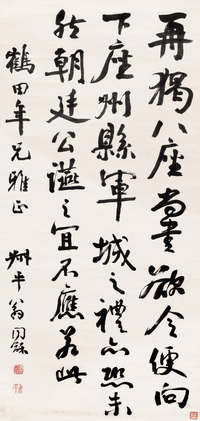 再揖八座尚書欲令便向
下座州縣軍城之禮亦恐未
然朝廷公讌之宜不應若此
鶴田年兄雅正 叔平翁同龢